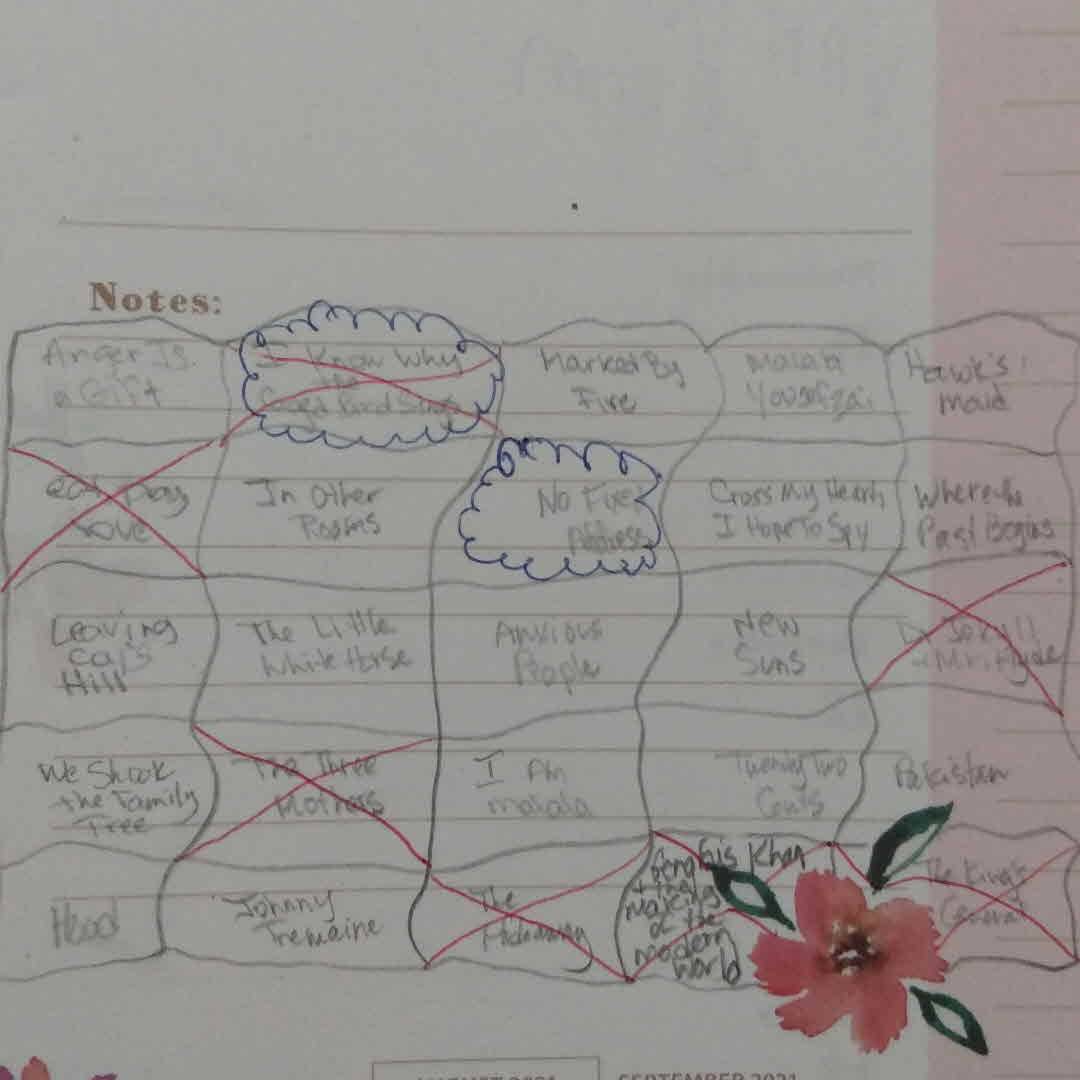 Notes:
Anger Is
a Gift
I Know Why
the
Caged Bird Sings
Marked By
Fire
Malala
Yousafzai
Hawk's
Maid
eat pray
love
In Other
Rooms
No Fixed
Address
Cross My Heart,
I Hope To Spy
Where the
Past Begins
Leaving
Hill
The Little
White Horse
Anxious
People
New
Suns
Dr Jekyll
+ Mr. Hyde
We Shook
the Family
Tree
The Three
Mothers
I Am
malala
Twenty Two
Cents
Pakistan
Head
Johnny
Tremaine
The
Hideaway
Genghis Khan
+ the
Making
of the
modern
World
The King's
General
AUGUST 2021
SEPTEMBER 2021